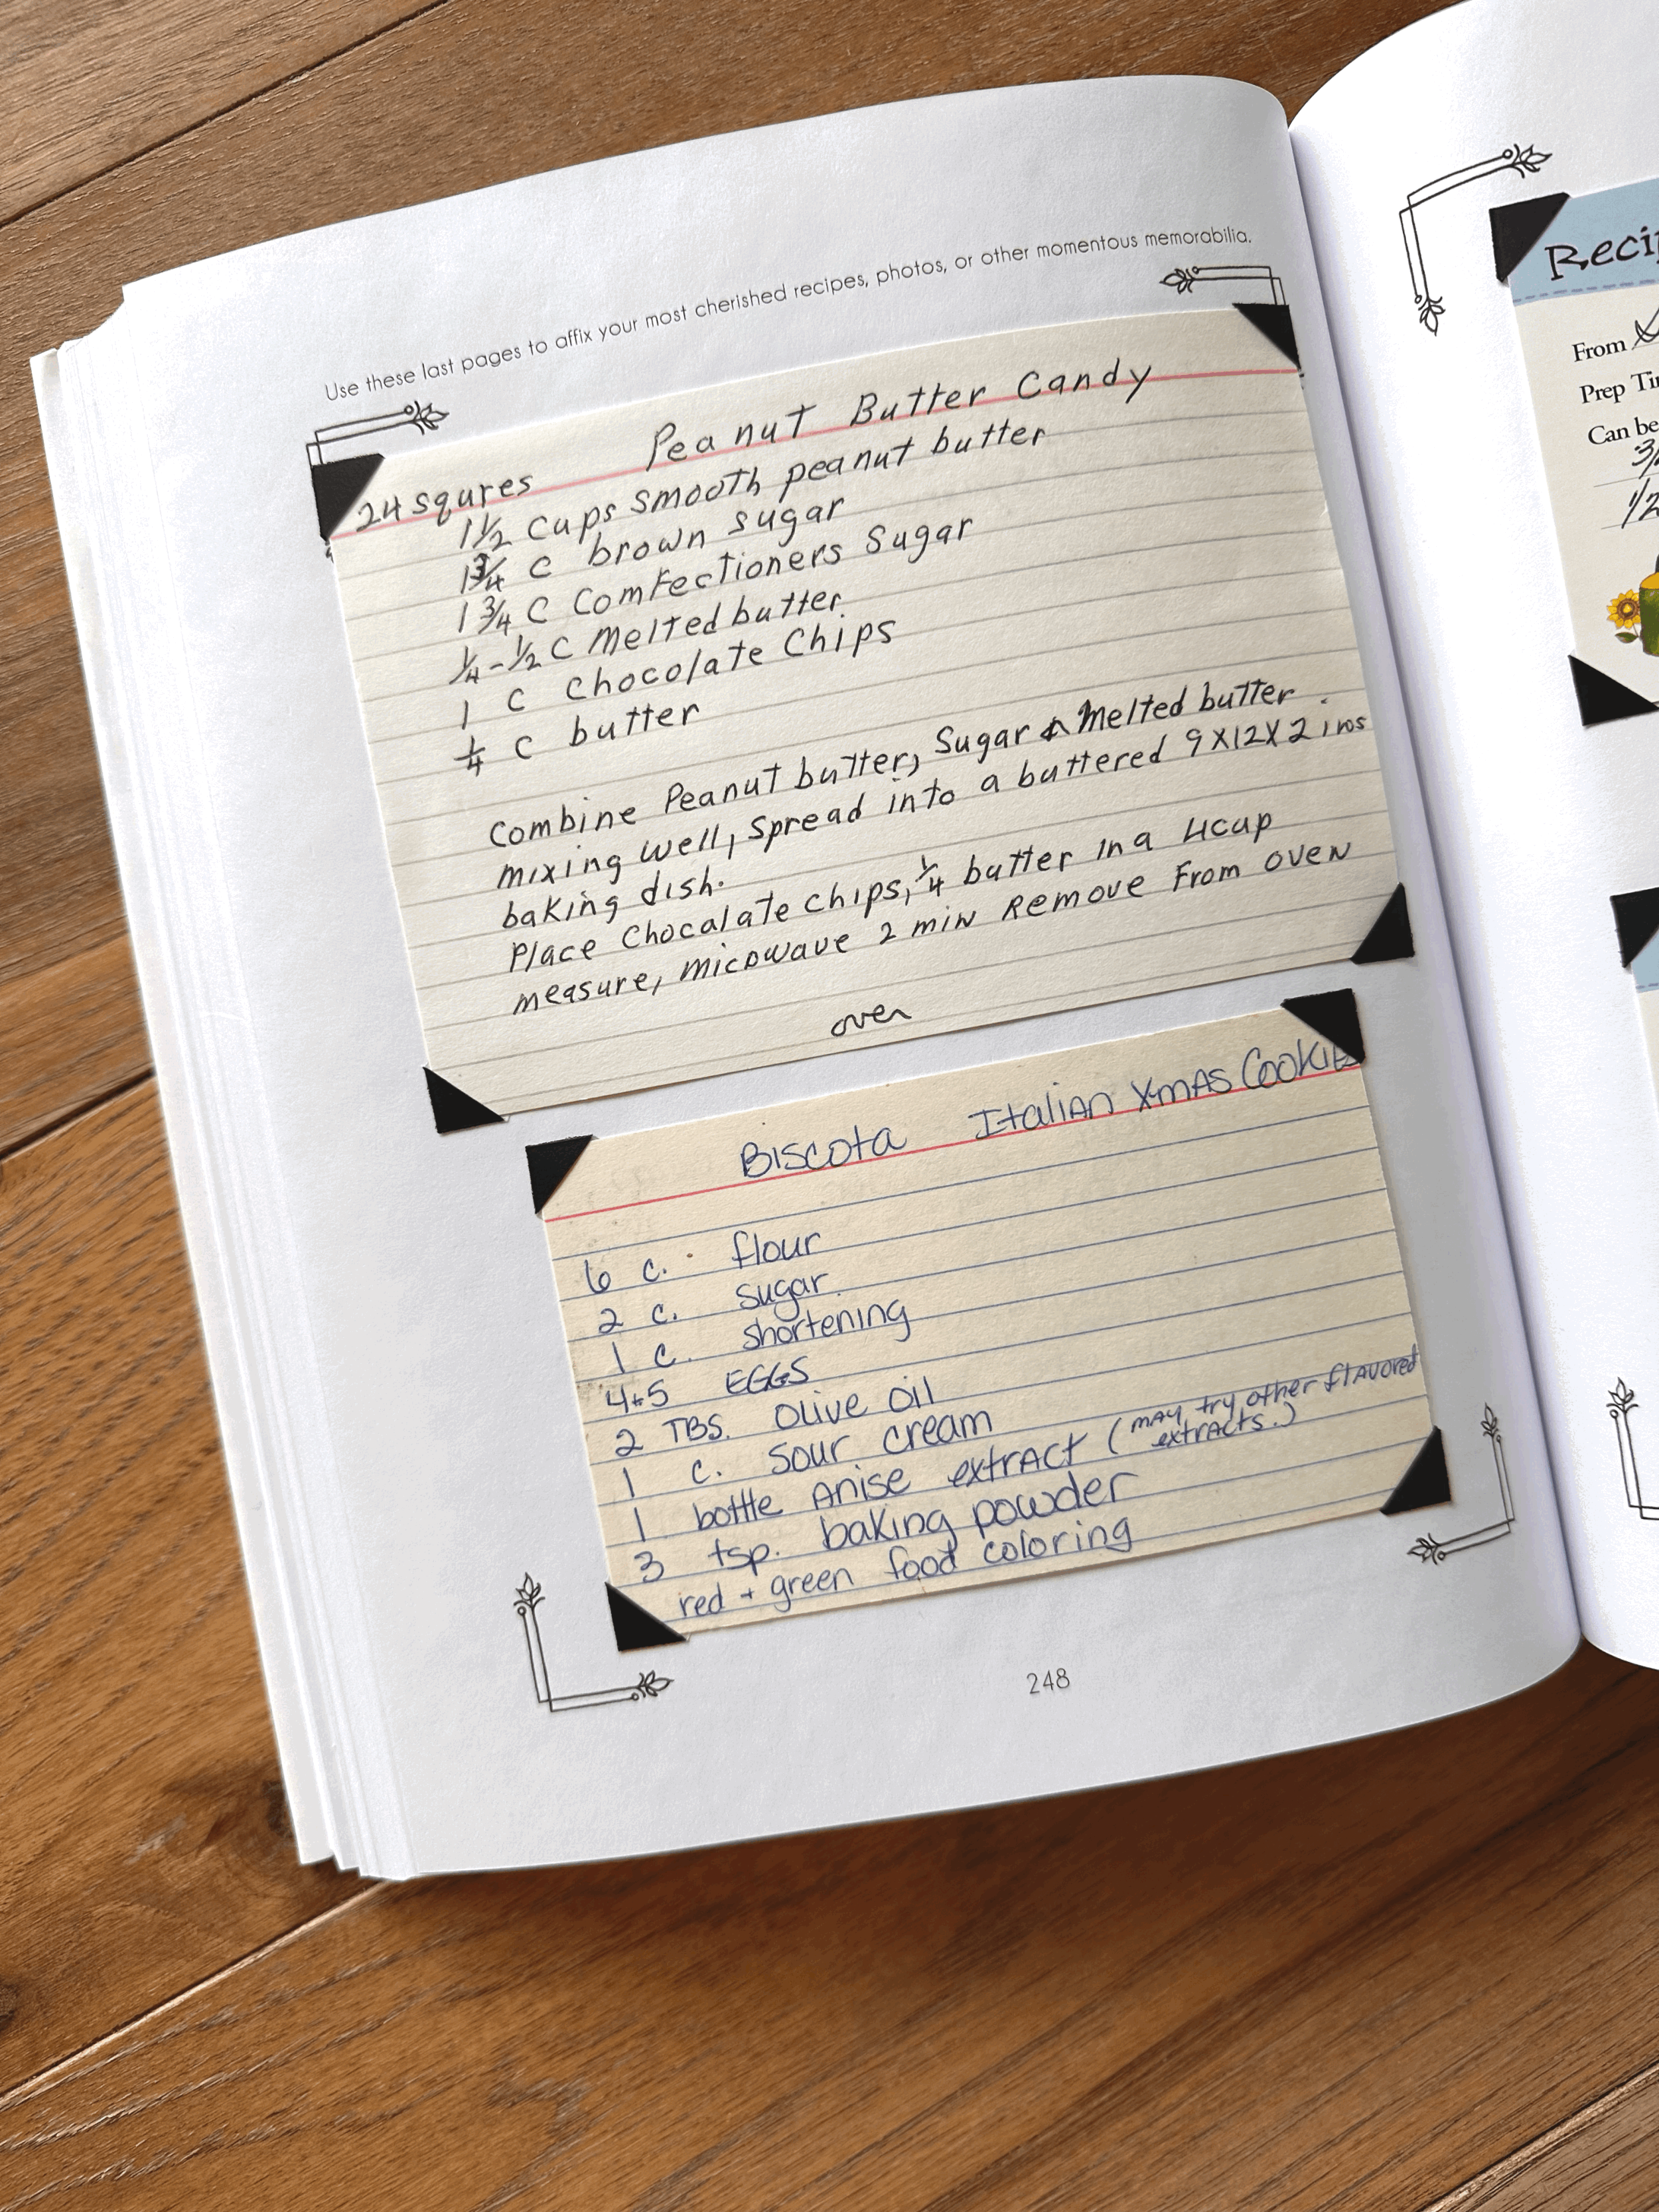 Use these last pages to affix your most cherished recipes, photos, or other momentous memorabilia.
Peanut Butter Candy
24 squres
1 1/2 cups smooth peanut butter
1 3/4 c brown sugar
1 3/4 c Comfectioners Sugar
1/4 - 1/2 c Melted butter
1 c Chocolate Chips
1/4 c butter
Combine Peanut butter, Sugar & Melted butter.
mixing well, spread into a buttered 9X12X2 ins
baking dish.
Place Chocalate chips, 1/4 butter in a 4cup
measure, micowave 2 min Remove From oven
over
Biscota Italian X-mas Cookie
6 c. flour
2 c. sugar
1 c. shortening
4+5 EGGS
2 TBS. Olive oil
1 c. sour cream
1 bottle Anise extract (may try other flavored
extracts.)
3 tsp. baking powder
red + green food coloring
248
From
Prep
Can be
1/2